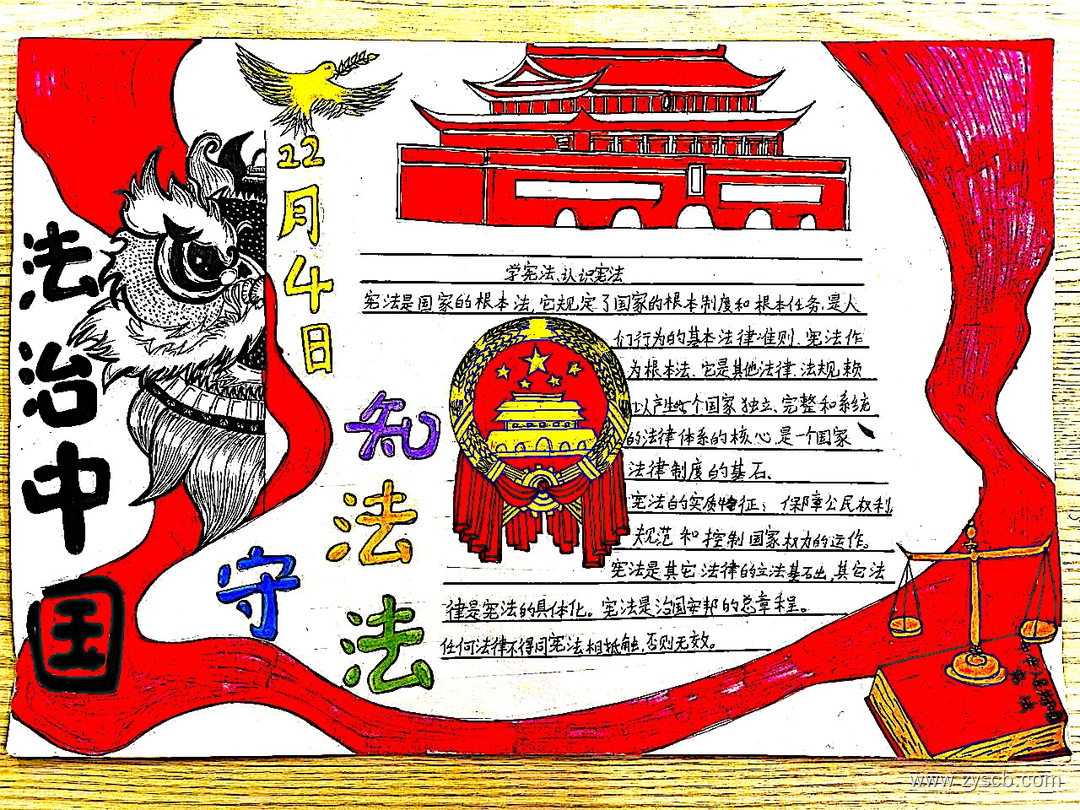 法治中国
22月4日
知法
守法
学宪法、认识宪法
宪法是国家的根本法,它规定了国家的根本制度和根本任务.是人
们行为的基本法律准则、宪法作
为根本法、它是其他法律、法规赖
以产生
个国家独立、完整和系统
的法律体系的核心是一个国家
法律制度的基石、
宪法的实质特征：保障公民权利
规范和控制国家权力的运作。
宪法是其它法律的立法基石出,其它法
律是宪法的具体化。宪法是治国安邦的总章程。
任何法律不得同宪法相抵触,否则无效。
www.zyscb.com